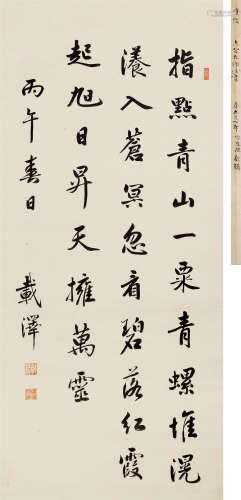 指點青山一粟青螺堆滉
瀁入蒼冥忽看碧落紅霞
起旭日昇天擁萬靈
丙午春日
載澤